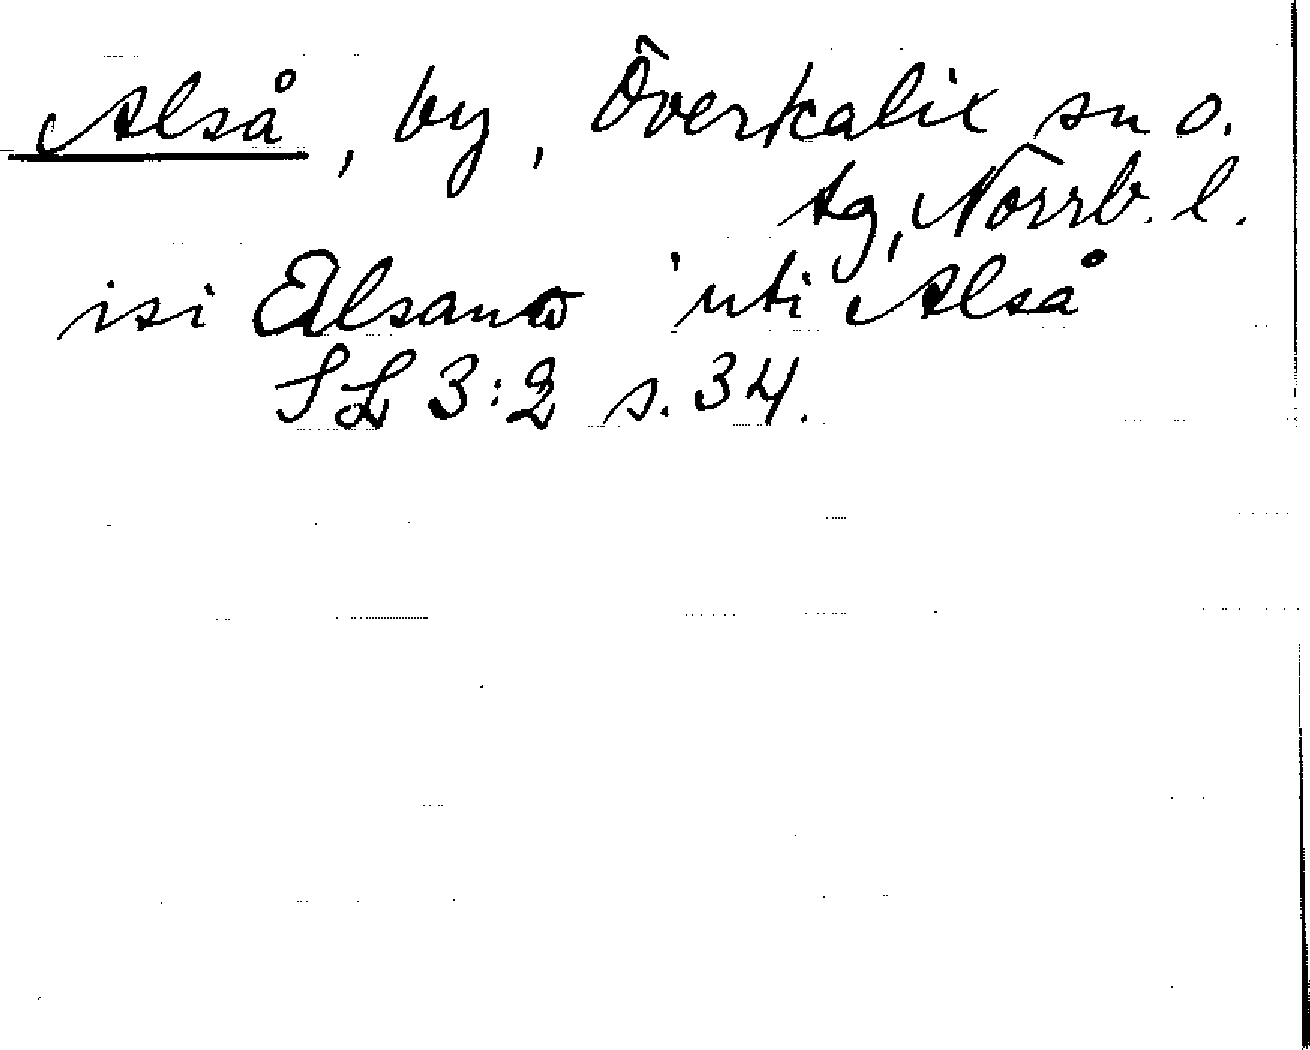 Alså, by, Överkalix sn o.
tg, Norrb. l.
isi Ælsanω 'uti Alså
SL 3:2 s. 34.